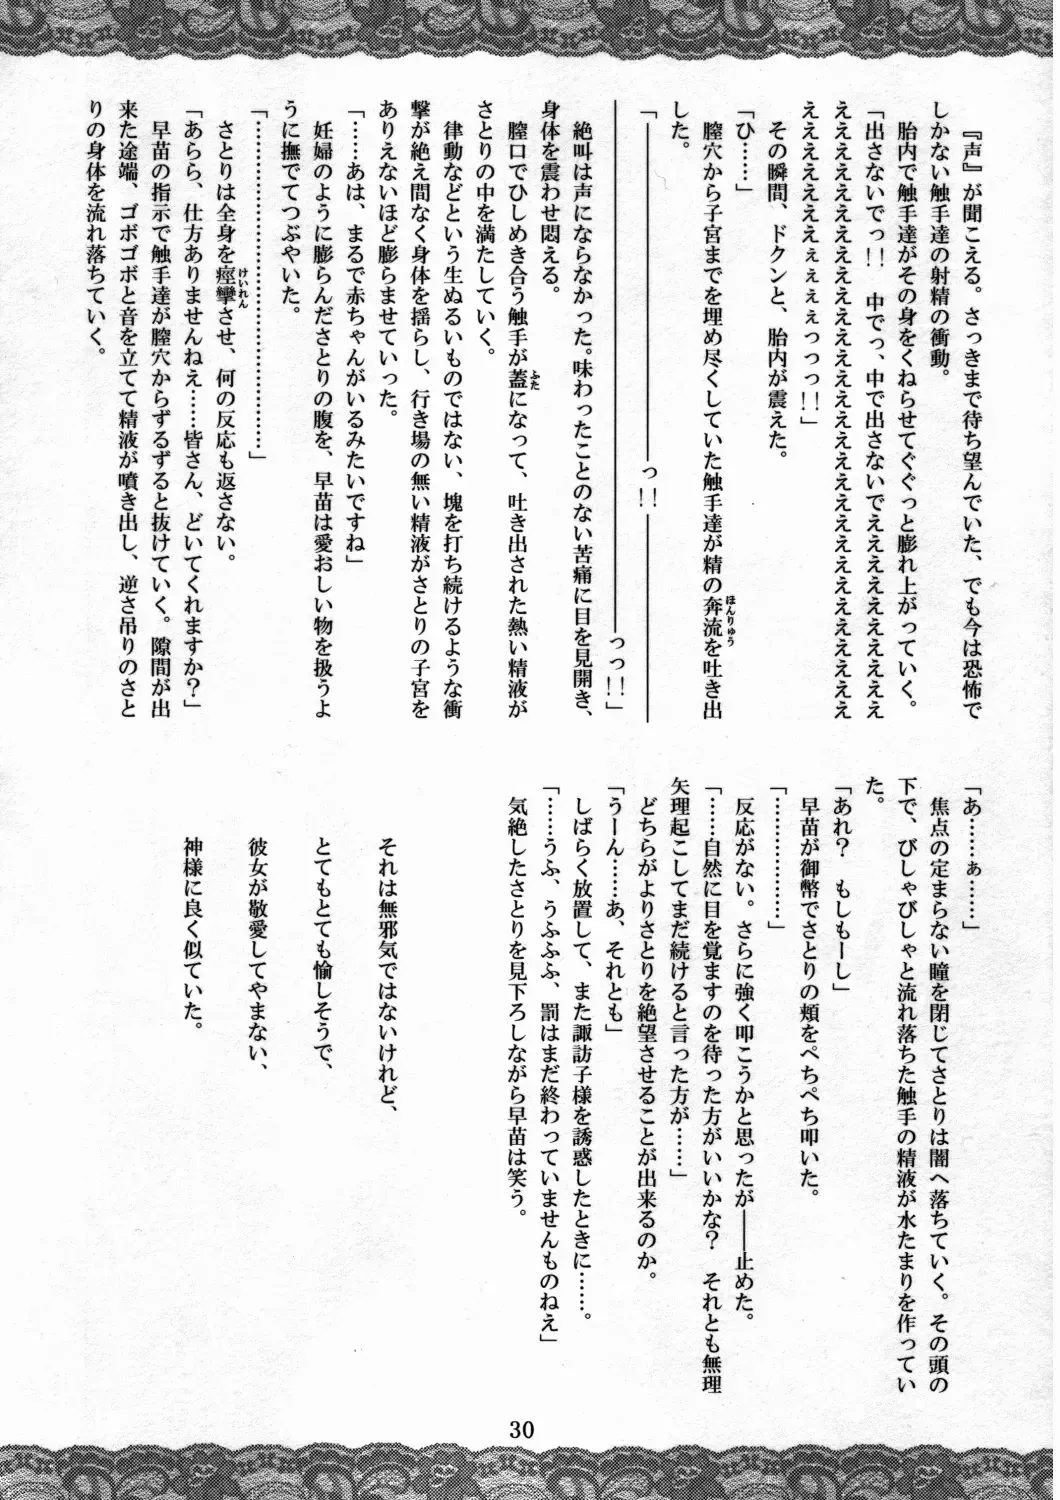 『声』が聞こえる。さっきまで待ち望んでいた、でも今は恐怖で
しかない触手達の射精の衝動。
胎内で触手達がその身をくねらせてぐぐっと膨れ上がっていく。
「出さないでっ！！　中でっ、中で出さないでえええええええええ
ええええええええええええええええええええええええええええ
ええええええええぇぇぇぇっっっ！！」
その瞬間、ドクンと、胎内が震えた。
「ひ……」
膣穴から子宮までを埋め尽くしていた触手達が精の奔流を吐き出
した。
「―――――――――――――――っ！！―――――――――
―――――――――――――――――――――――っっ！！」
絶叫は声にならなかった。味わったことのない苦痛に目を見開き、
身体を震わせ悶える。
膣口でひしめき合う触手が蓋になって、吐き出された熱い精液が
さとりの中を満たしていく。
律動などという生ぬるいものではない、塊を打ち続けるような衝
撃が絶え間なく身体を揺らし、行き場の無い精液がさとりの子宮を
ありえないほど膨らませていった。
「……あは、まるで赤ちゃんがいるみたいですね」
妊婦のように膨らんださとりの腹を、早苗は愛おしい物を扱うよ
うに撫でてつぶやいた。
「……………………………………」
さとりは全身を痙攣させ、何の反応も返さない。
「あらら、仕方ありませんねえ……皆さん、どいてくれますか？」
早苗の指示で触手達が膣穴からずるずると抜けていく。隙間が出
来た途端、ゴボゴボと音を立てて精液が噴き出し、逆さ吊りのさと
りの身体を流れ落ちていく。
「あ……ぁ……」
焦点の定まらない瞳を閉じてさとりは闇へ落ちていく。その頭の
下で、びしゃびしゃと流れ落ちた触手の精液が水たまりを作ってい
た。
「あれ？　もしもーし」
早苗が御幣でさとりの頬をぺちぺち叩いた。
「………………」
反応がない。さらに強く叩こうかと思ったが――止めた。
「……自然に目を覚ますのを待った方がいいかな？　それとも無理
矢理起こしてまだ続けると言った方が……」
どちらがよりさとりを絶望させることが出来るのか。
「うーん……あ、それとも」
しばらく放置して、また諏訪子様を誘惑したときに……。
「……うふ、うふふふ、罰はまだ終わっていませんものねえ」
気絶したさとりを見下ろしながら早苗は笑う。
それは無邪気ではないけれど、
とてもとても愉しそうで、
彼女が敬愛してやまない、
神様に良く似ていた。
30